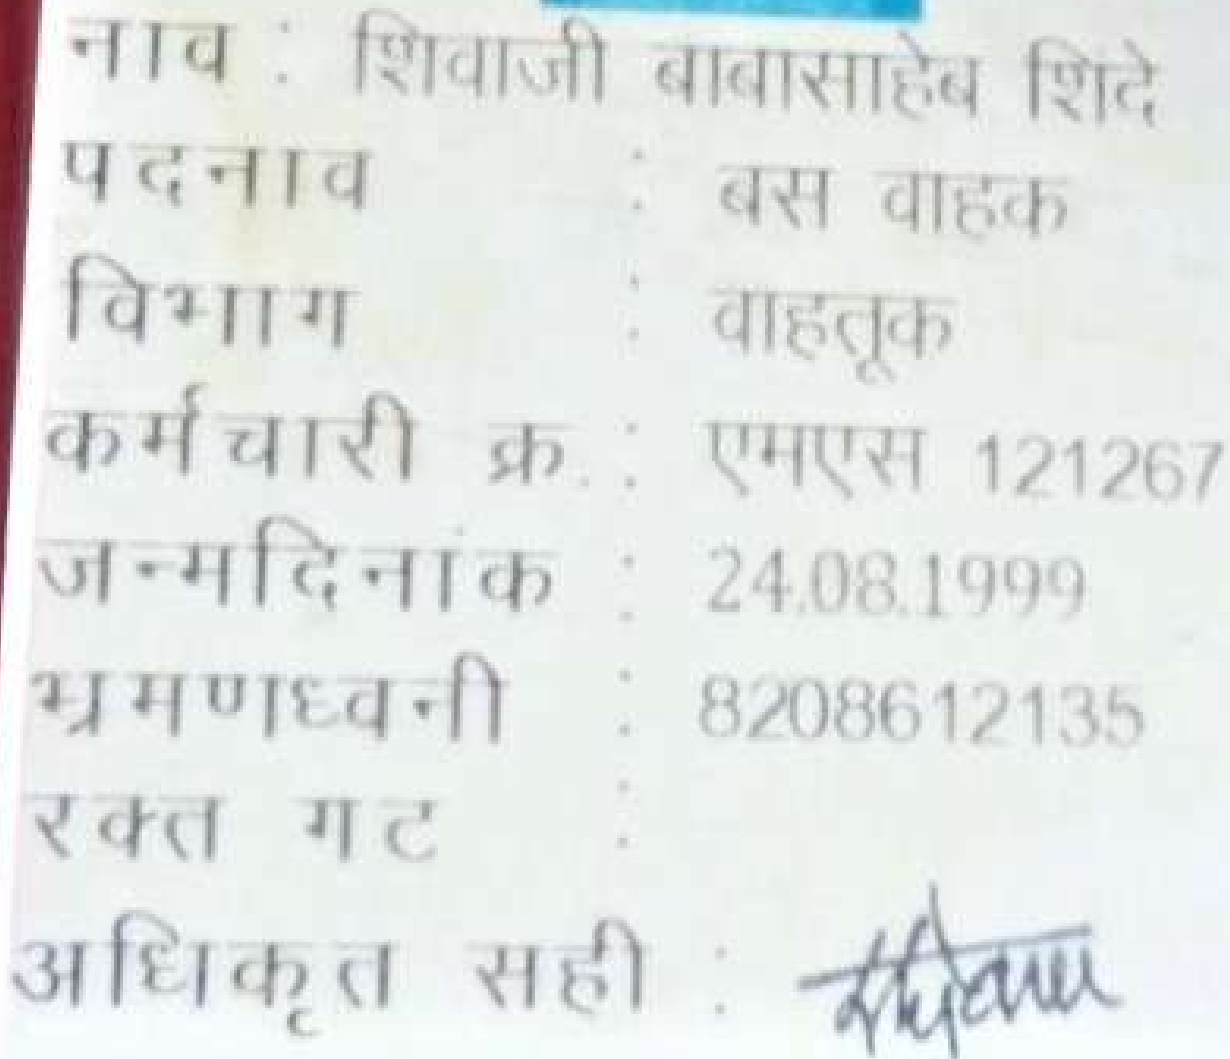 नाव : शिवाजी बाबासाहेब शिंदे
पदनाव : बस वाहक
विभाग : वाहतूक
कर्मचारी क्र. : एमएस 121267
जन्मदिनांक : 24.08.1999
भ्रमणध्वनी : 8208612135
रक्त गट :
अधिकृत सही :